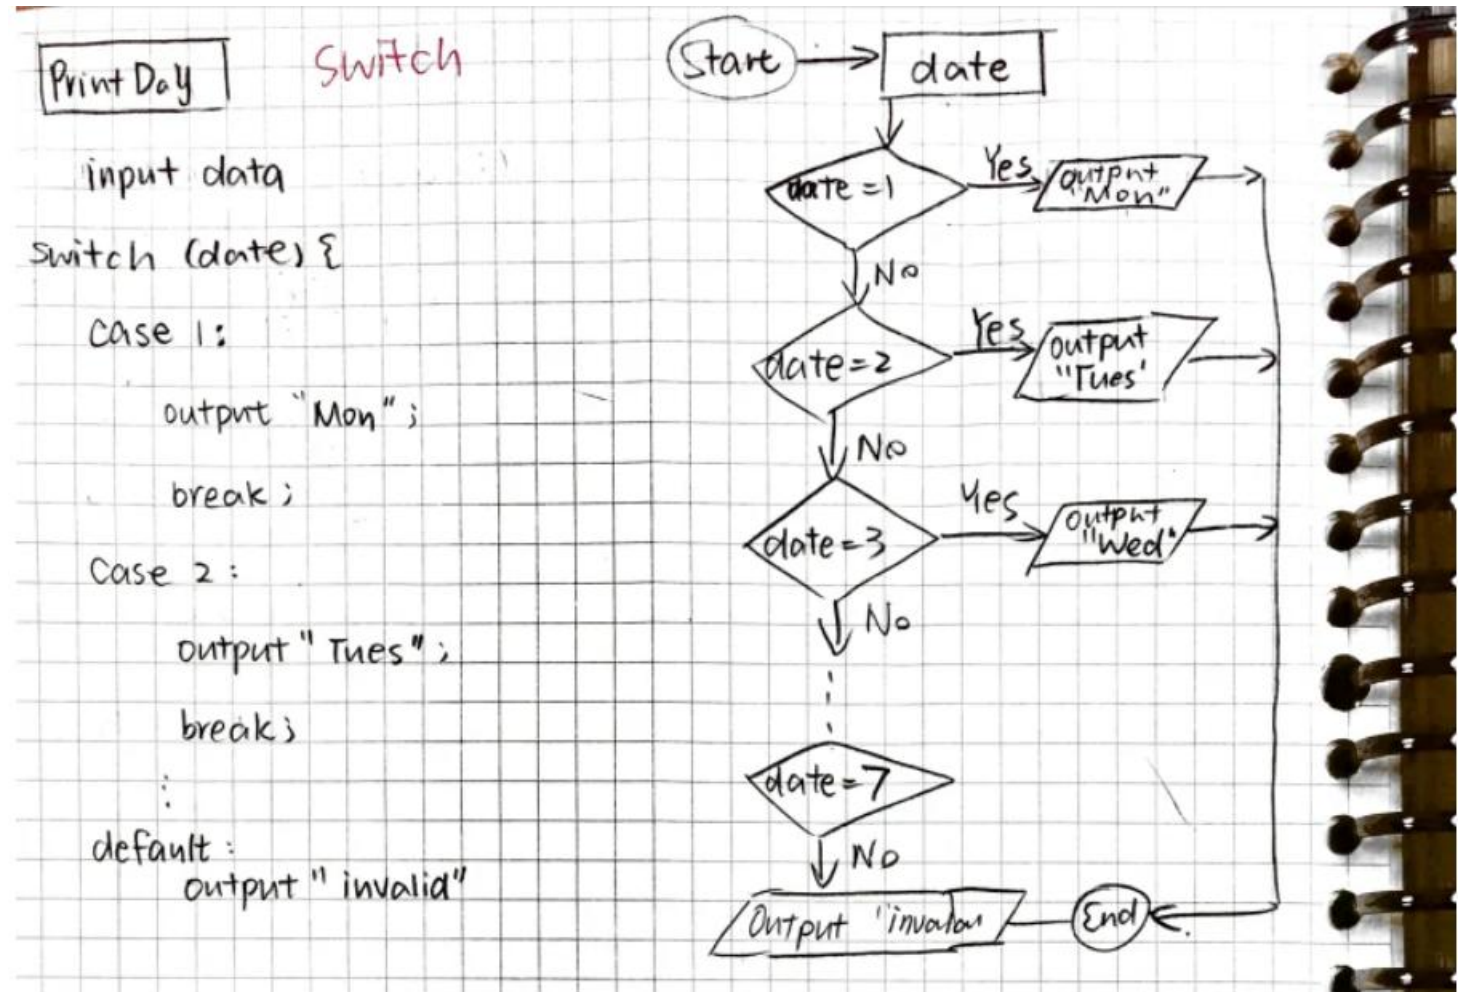 Print Day
Switch
input data
switch (date) {
case 1:
output "Mon";
break;
case 2:
output "Tues";
break;
:
default:
output "invalid"
Start
date
date = 1
Yes
output
"Mon"
No
date = 2
Yes
output
"Tues'
No
date = 3
Yes
output
"Wed"
No
date = 7
No
Output "
End